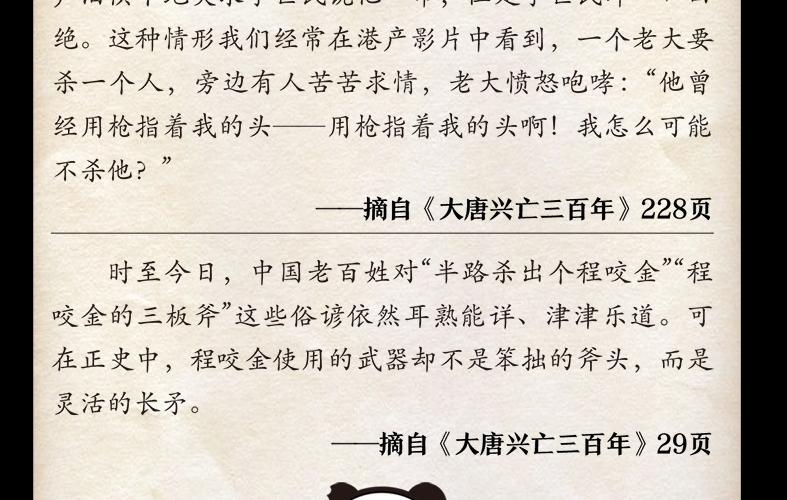 绝。这种情形我们经常在港产影片中看到，一个老大要
杀一个人，旁边有人苦苦求情，老大愤怒咆哮：“他曾
经用枪指着我的头——用枪指着我的头啊！我怎么可能
不杀他？”
——摘自《大唐兴亡三百年》228页
时至今日，中国老百姓对“半路杀出个程咬金”“程
咬金的三板斧”这些俗谚依然耳熟能详、津津乐道。可
在正史中，程咬金使用的武器却不是笨拙的斧头，而是
灵活的长矛。
——摘自《大唐兴亡三百年》29页